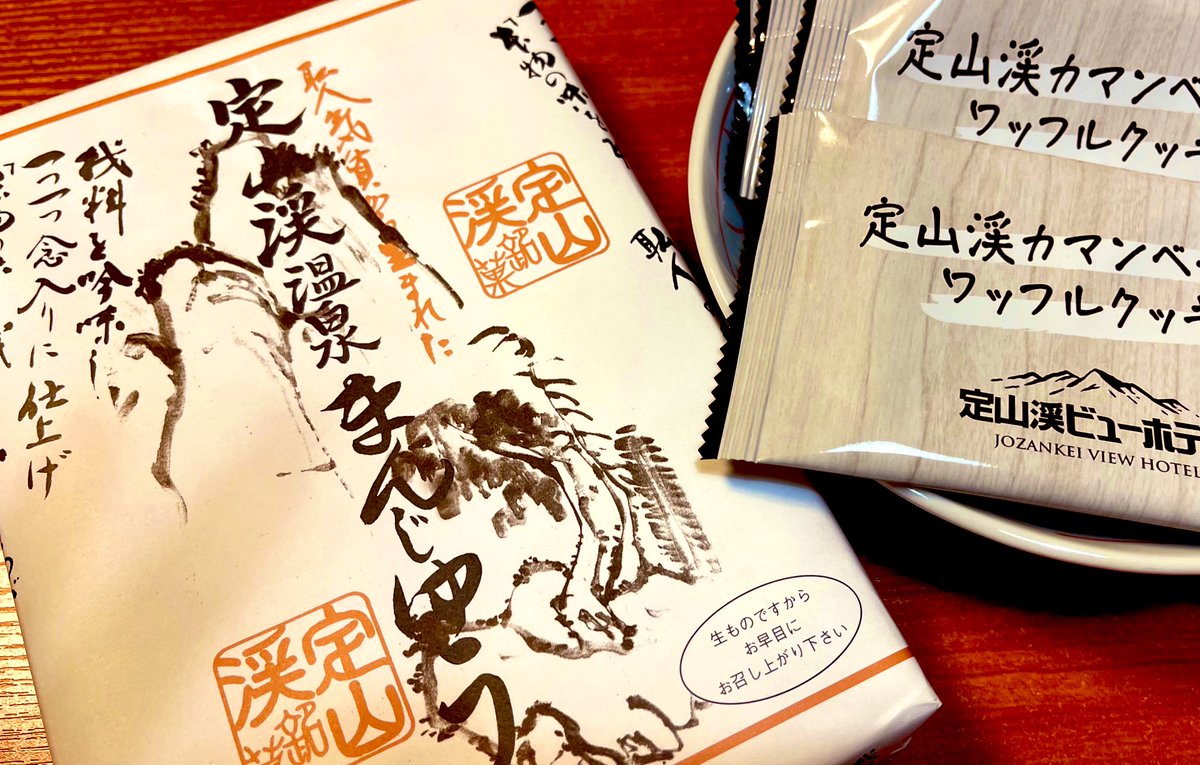 定山渓温泉まんじゅう
職人気質から生まれた
材料を吟味し
一つ一つ念入りに仕上げ
本物の味
定山
渓
銘
菓
定山
渓
銘
菓
生ものですから
お早目に
お召し上がり下さい
定山渓カマンベ
ワッフルクッキ
定山渓カマンベ
ワッフルクッキ
定山渓ビューホテ
JOZANKEI VIEW HOTEL